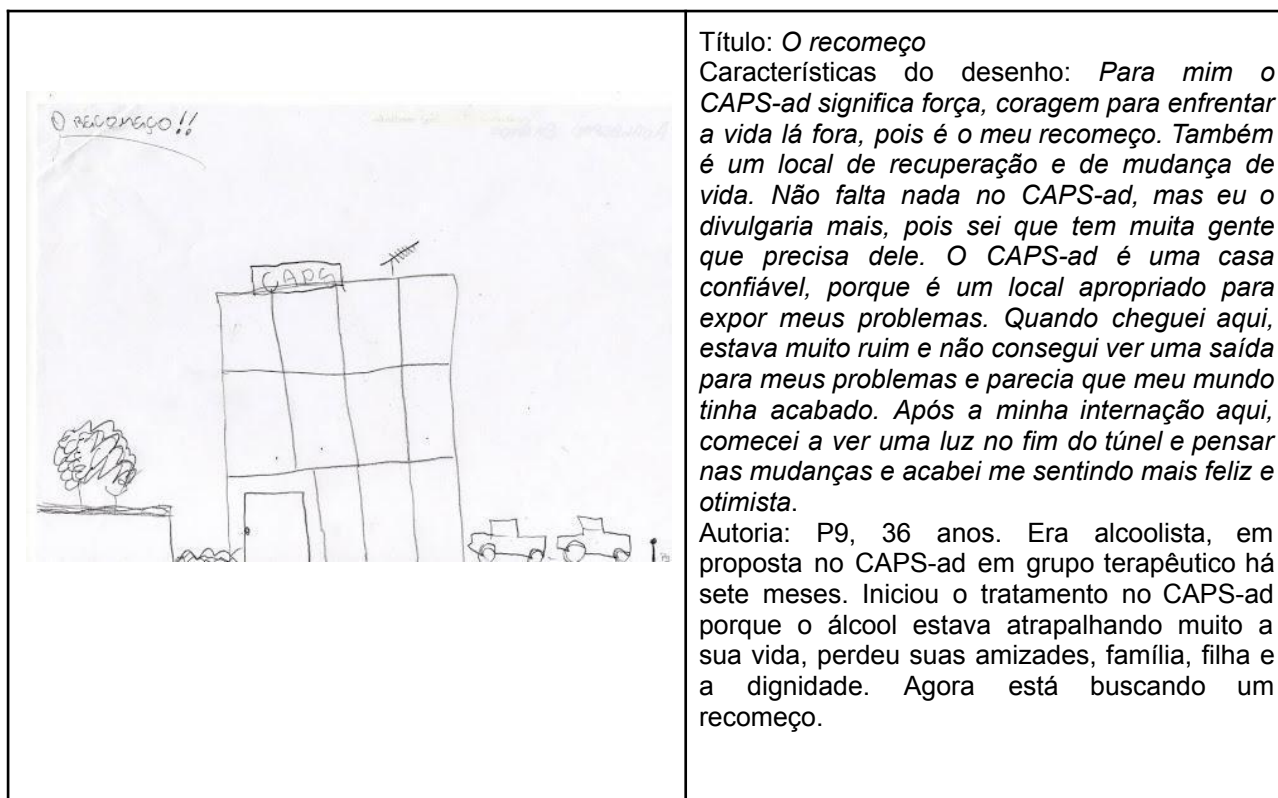 O RECOMEÇO!!
CAPS
Título: O recomeço
Características do desenho: Para mim o
CAPS-ad significa força, coragem para enfrentar
a vida lá fora, pois é o meu recomeço. Também
é um local de recuperação e de mudança de
vida. Não falta nada no CAPS-ad, mas eu o
divulgaria mais, pois sei que tem muita gente
que precisa dele. O CAPS-ad é uma casa
confiável, porque é um local apropriado para
expor meus problemas. Quando cheguei aqui,
estava muito ruim e não consegui ver uma saída
para meus problemas e parecia que meu mundo
tinha acabado. Após a minha internação aqui,
comecei a ver uma luz no fim do túnel e pensar
nas mudanças e acabei me sentindo mais feliz e
otimista.
Autoria: P9, 36 anos. Era alcoolista, em
proposta no CAPS-ad em grupo terapêutico há
sete meses. Iniciou o tratamento no CAPS-ad
porque o álcool estava atrapalhando muito a
sua vida, perdeu suas amizades, família, filha e
a dignidade. Agora está buscando um
recomeço.